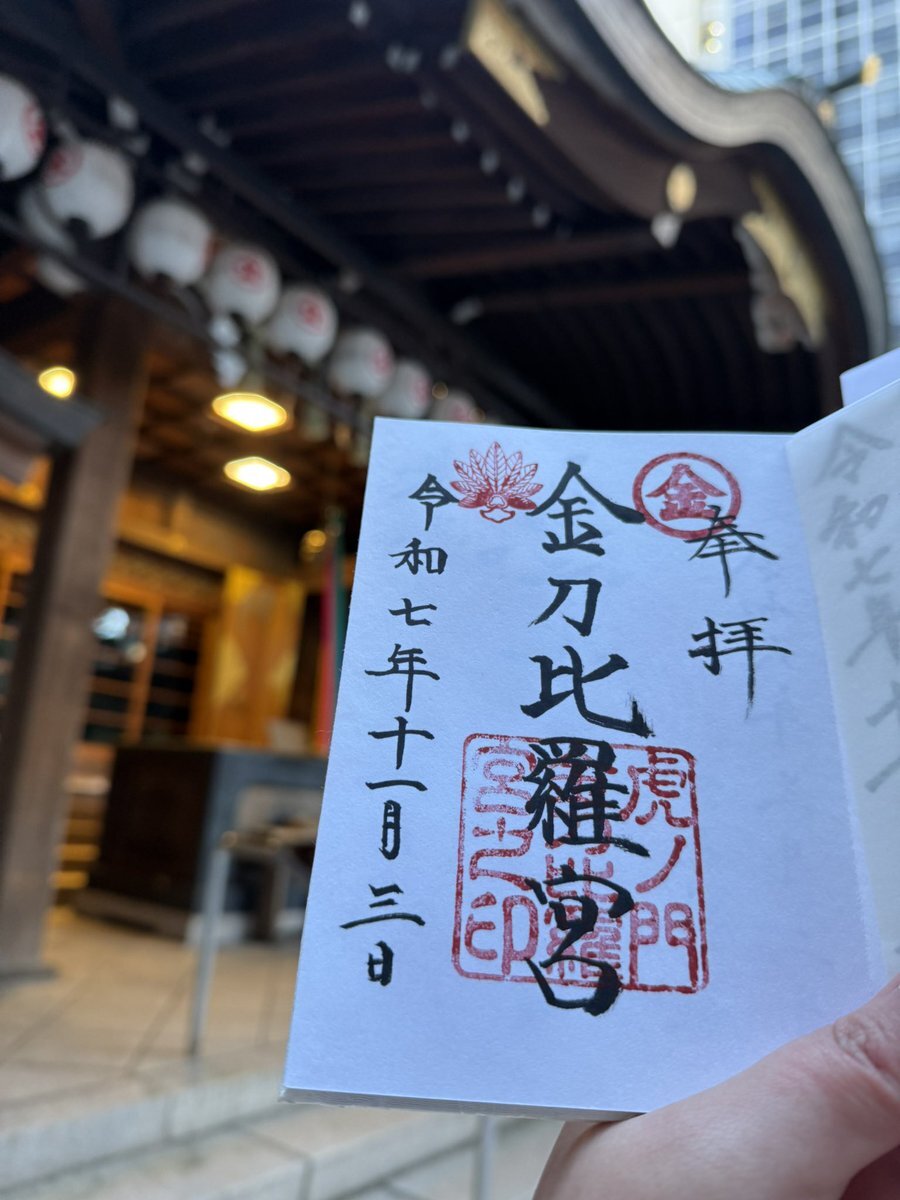 奉拝
金
金刀比羅宮
虎ノ門
宮之印
令和七年十一月三日
令和七年十一